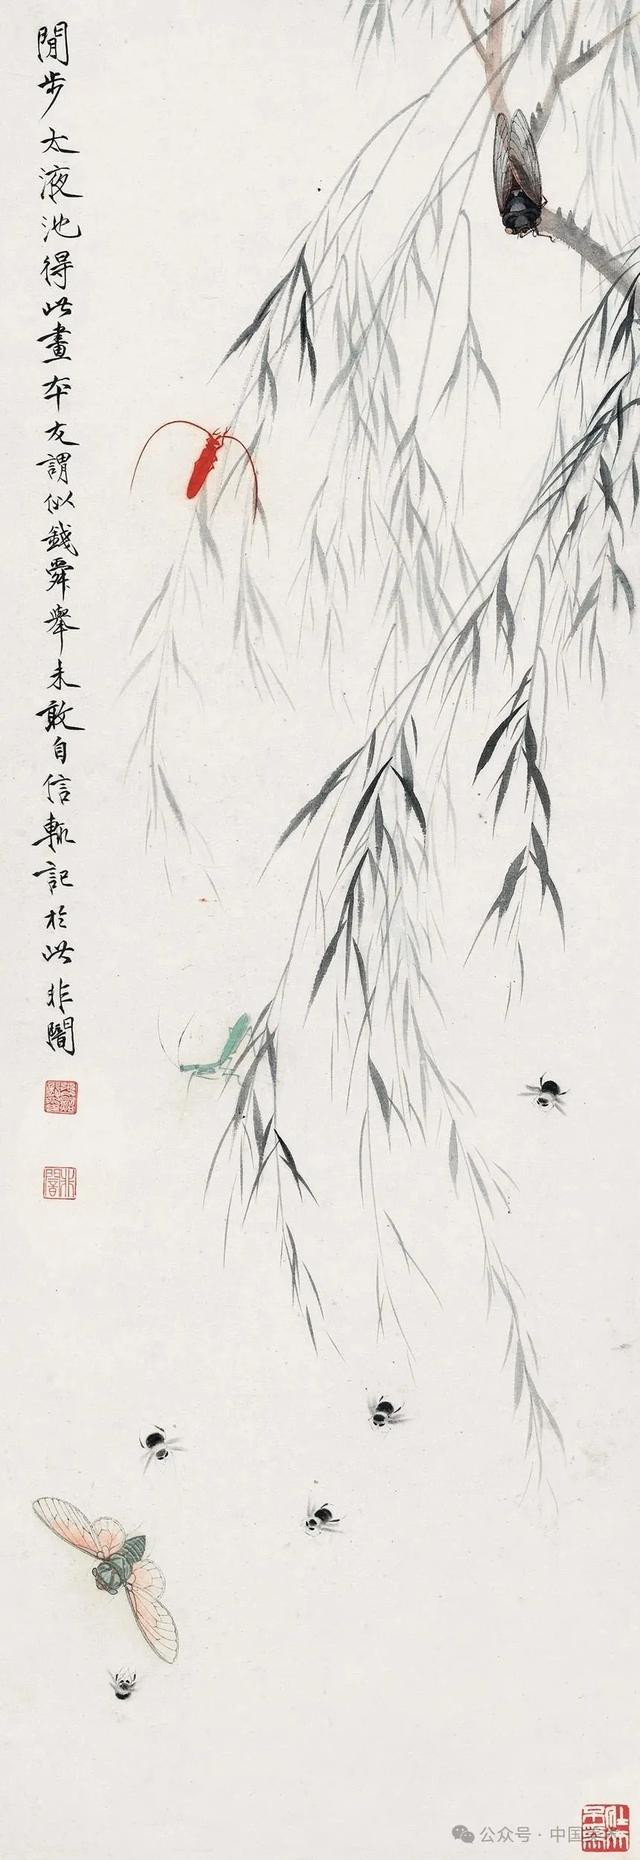 閒步太液池得此畫本友謂似錢舜舉未敢自信輒記於此非闇
公众号·中国